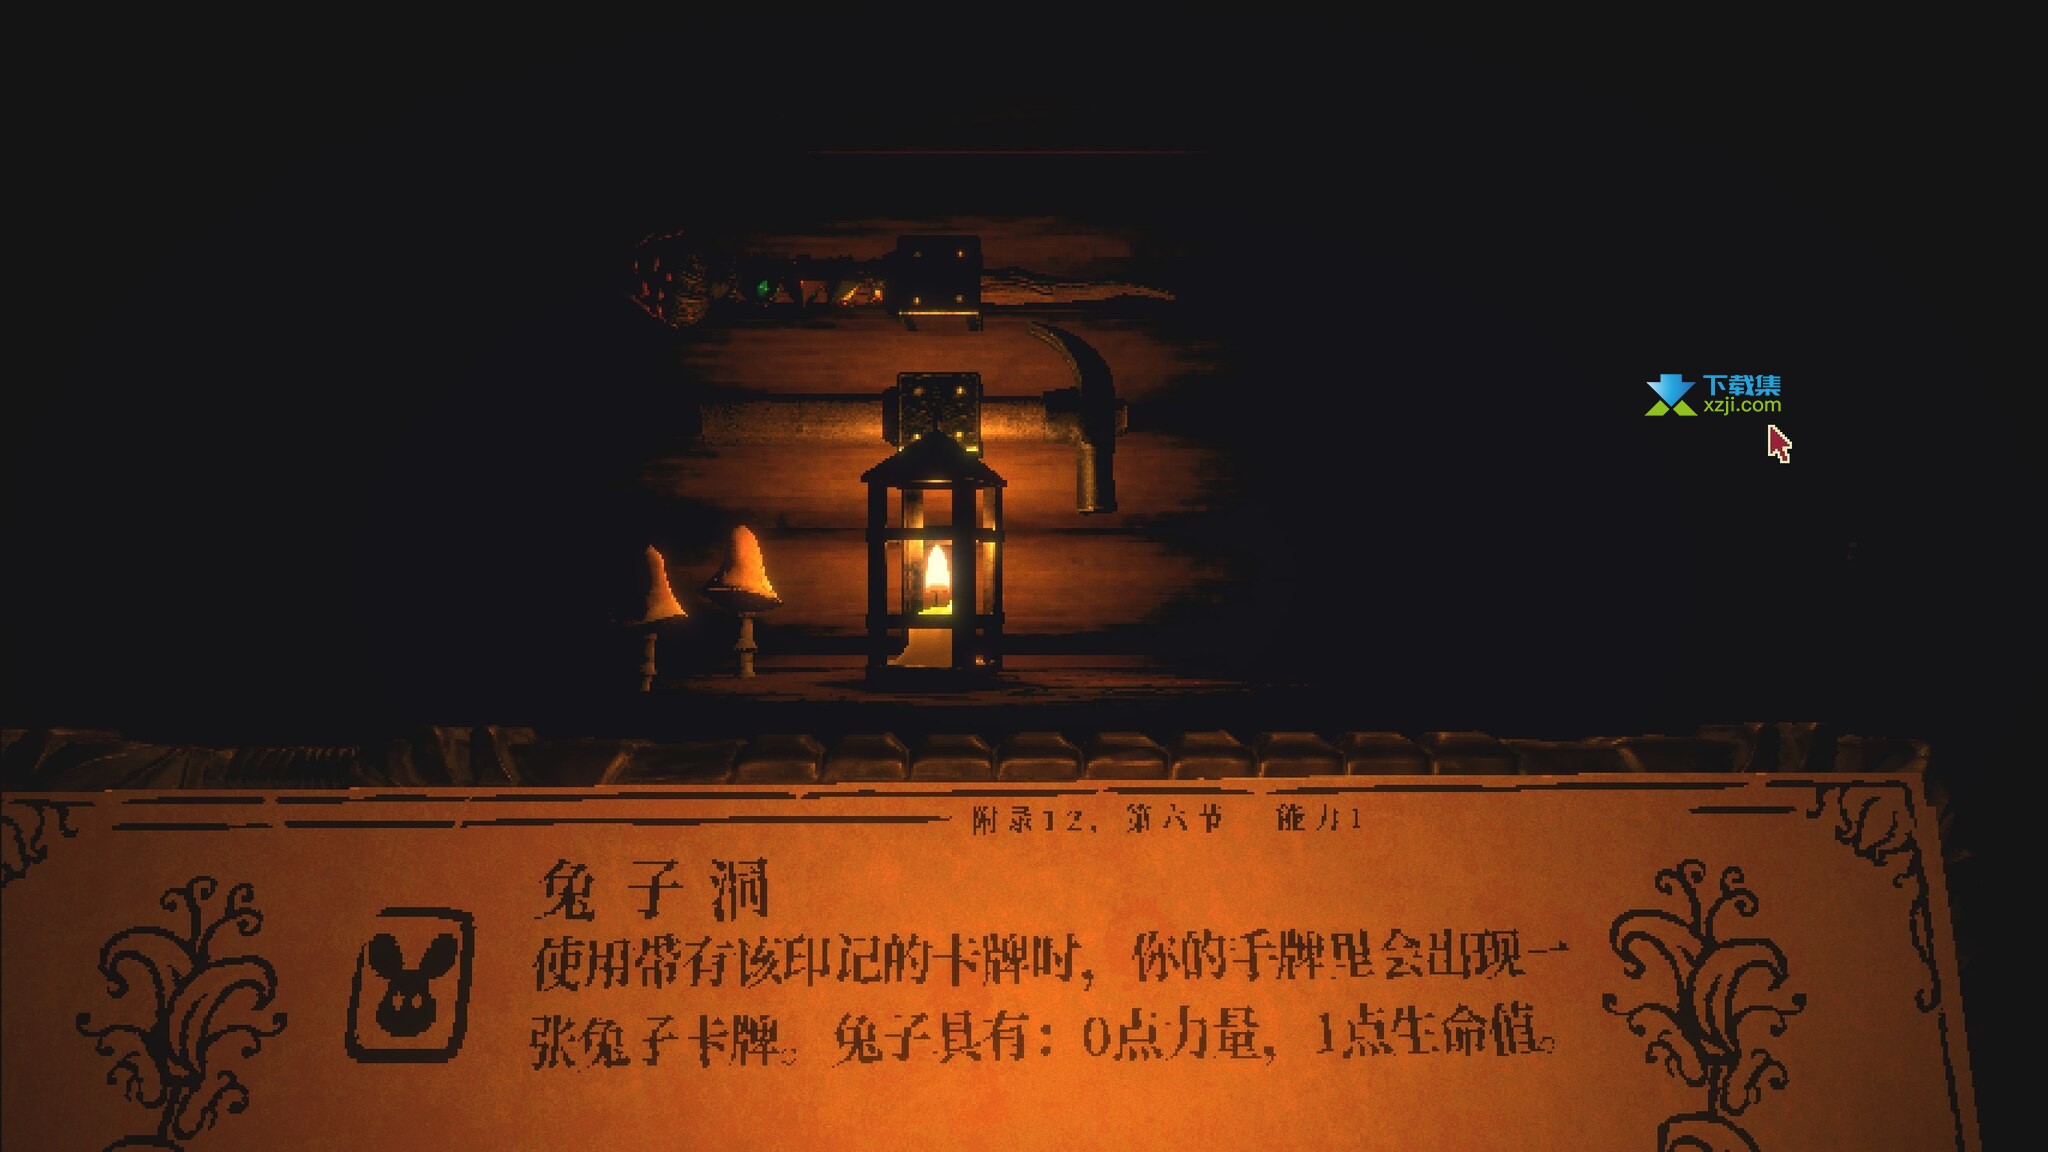 下载集
xzji.com
附录12，第六节 能力1
兔子洞
使用带有该印记的卡牌时，你的手牌里会出现一
张兔子卡牌。兔子具有：0点力量，1点生命值。